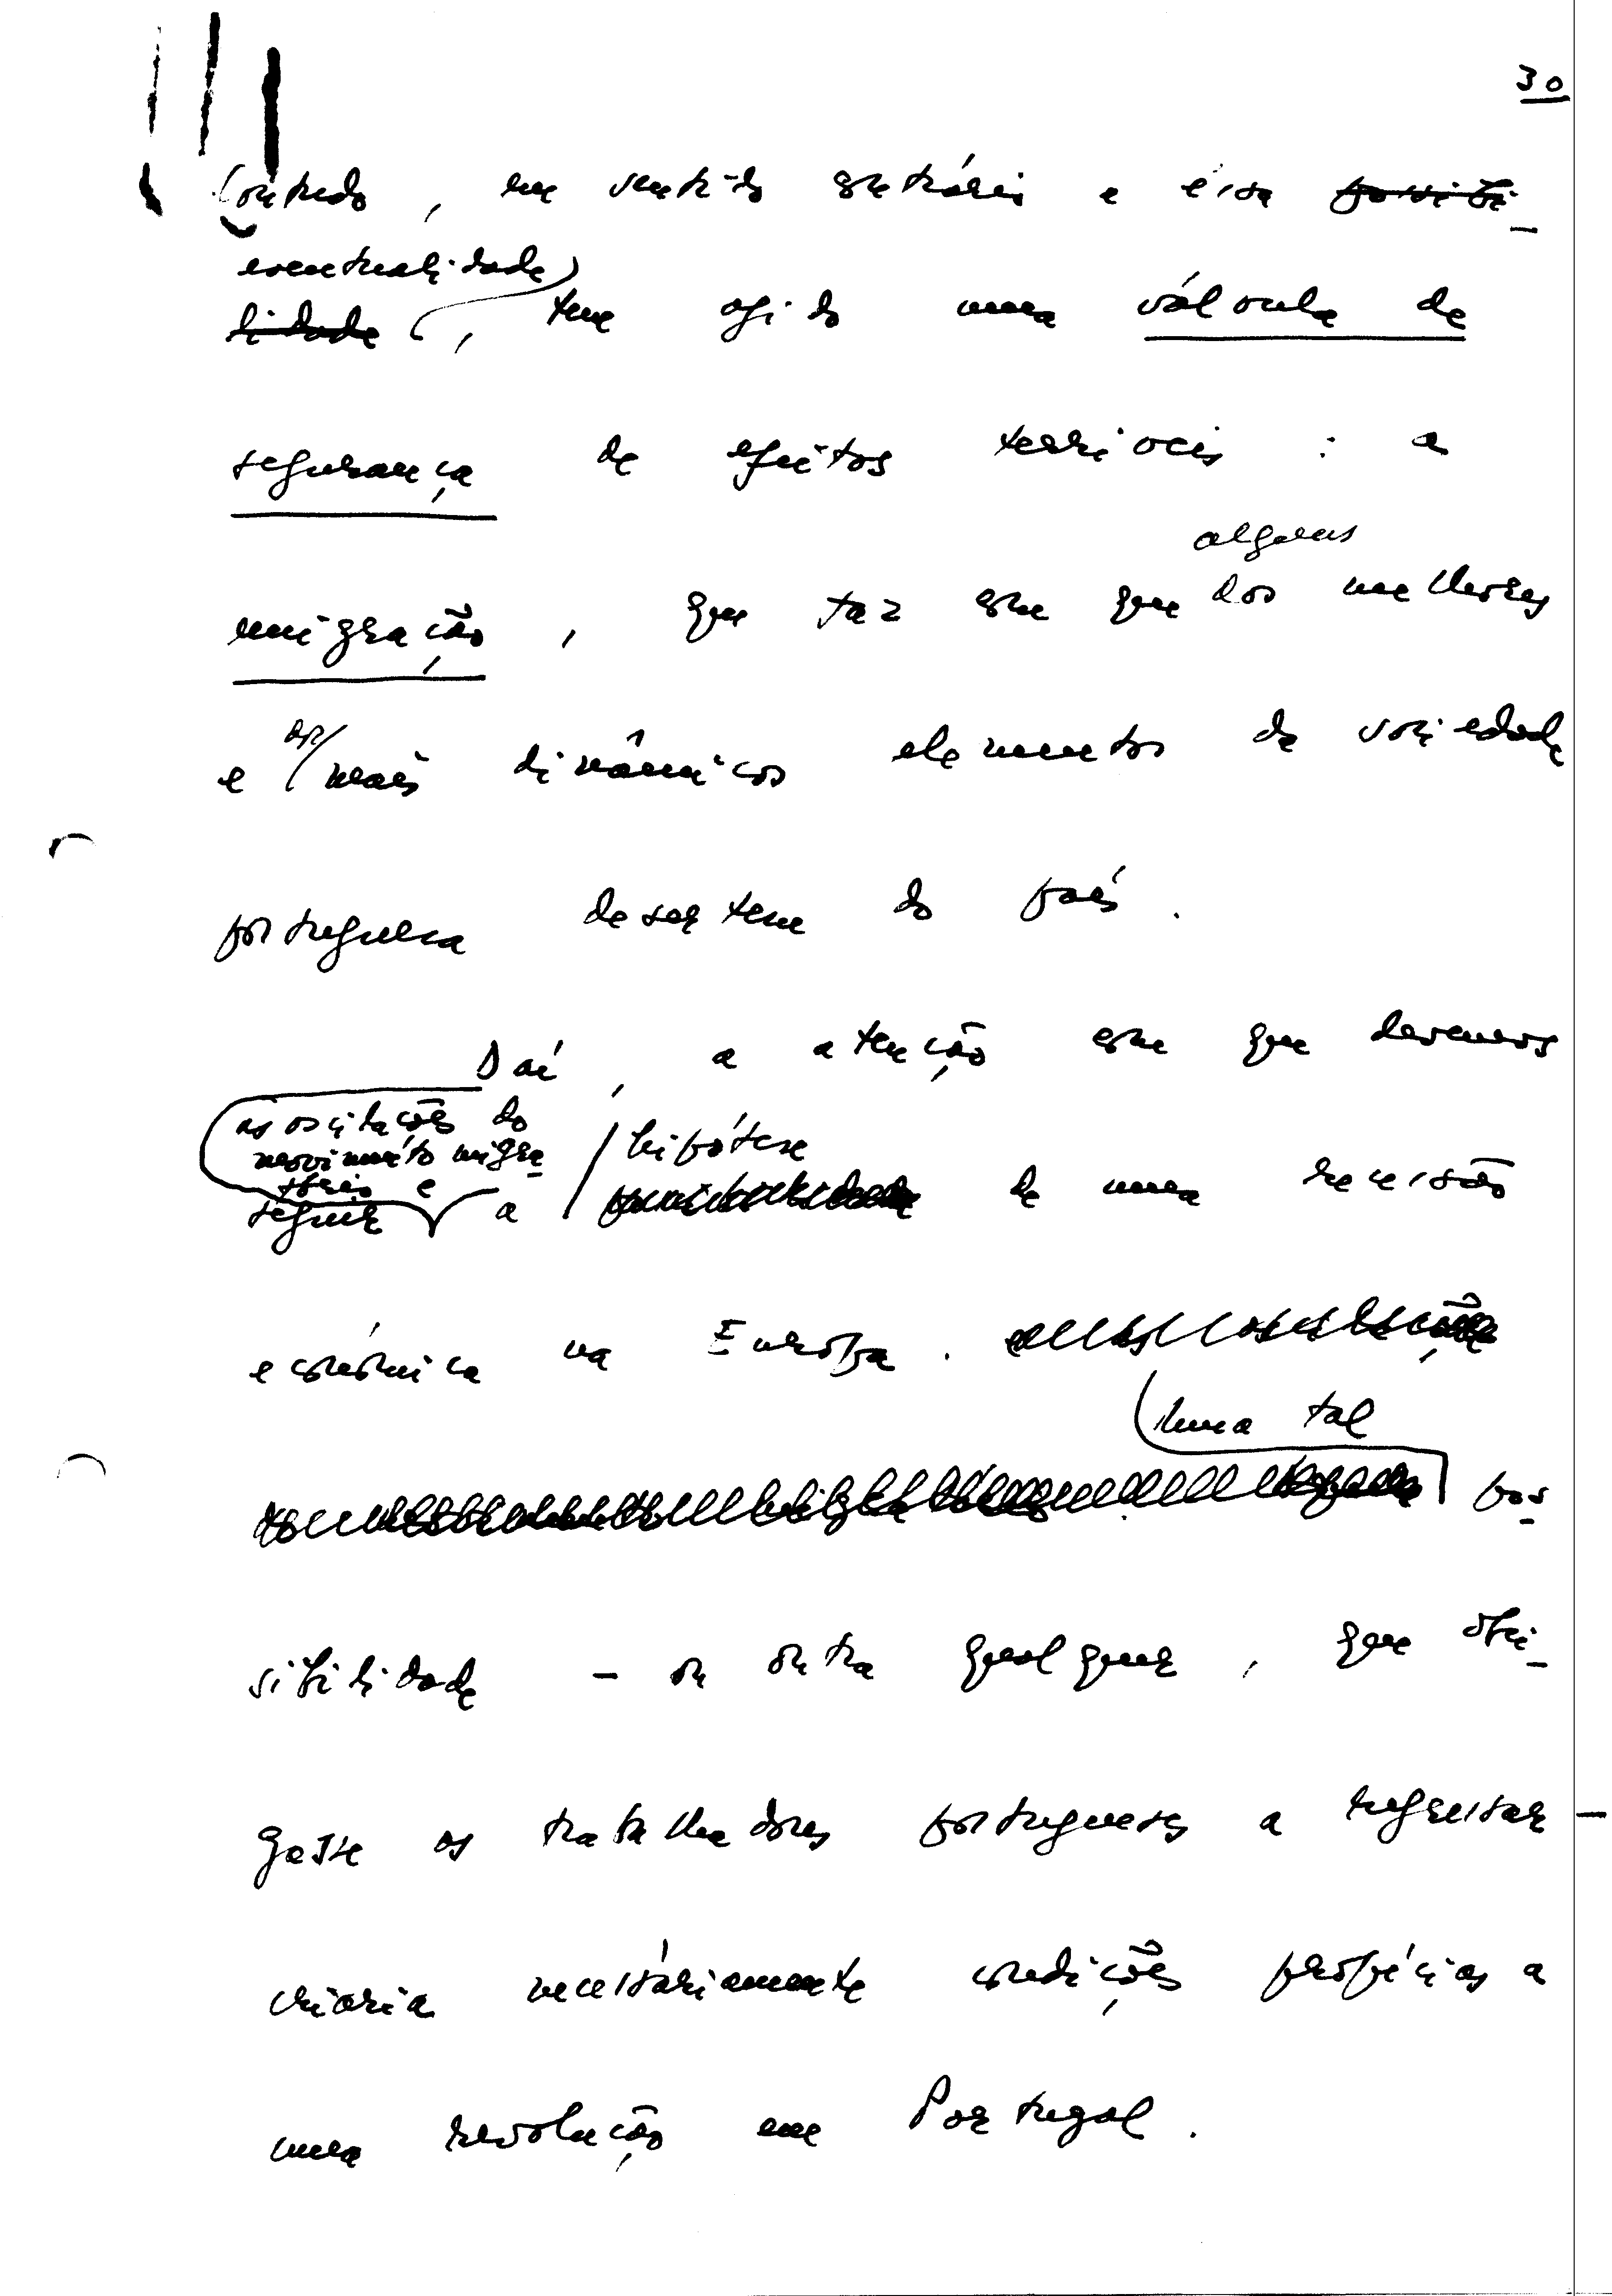 30
Contudo, em sentido contrário a essa possibi-
eventualidade
lidade, tem agido uma válvula de
segurança de efeitos terríveis : a
alguns
emigração, que faz com que dos melhores
e os mais dinâmicos elementos da sociedade
portuguesa desertem do país.
Daí, a atenção com que devemos
as oscilações do
movimento migra-
tório e
hipótese
seguir a possibilidade de uma recessão
económica na Europa.
Uma tal
pos-
sibilidade - ou outra qualquer, que obri-
gasse os trabalhadores portugueses a regressar -
criaria necessáriamente condições propícias a
uma revolução em Portugal.